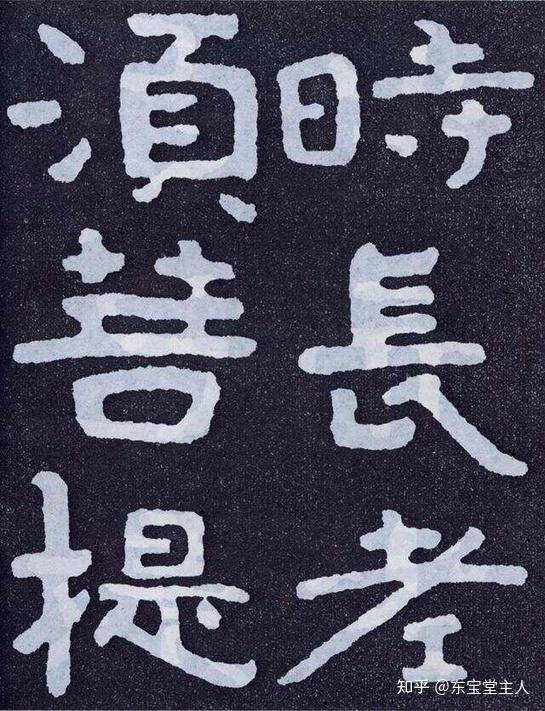 時長老
湏菩提
知乎 @东宝堂主人